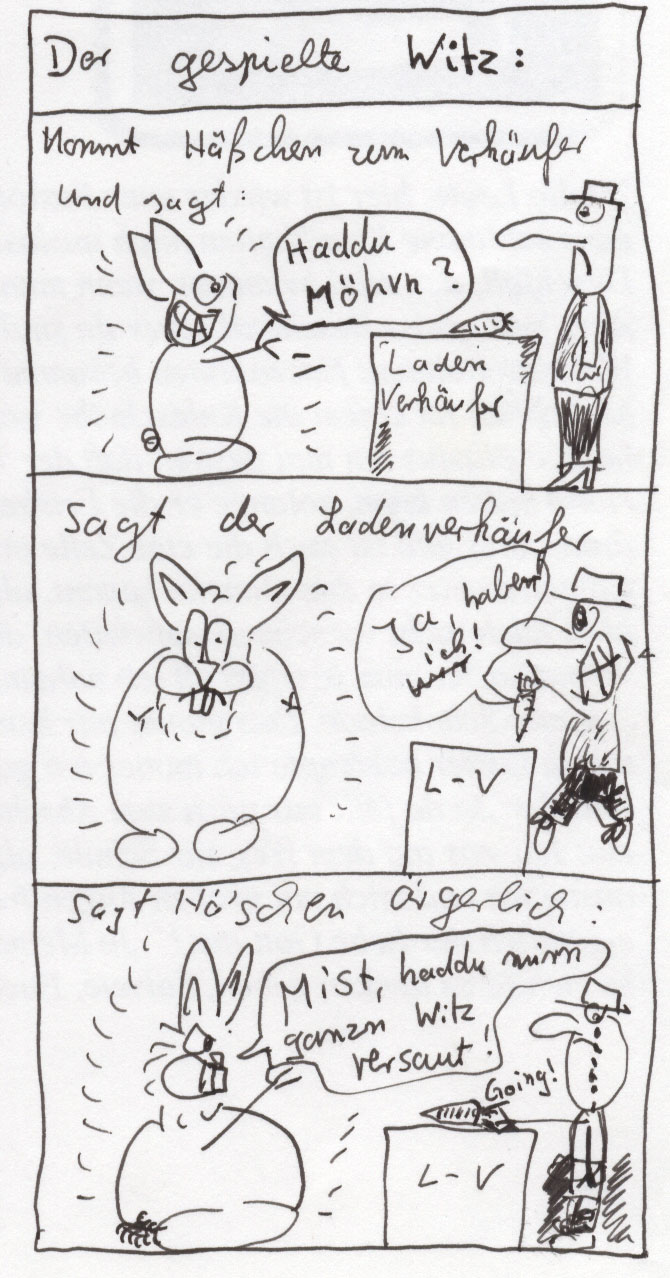 Der gespielte Witz:
Kommt Häßchen zum Verkäufer
und sagt
Haddu
Möhrn?
Laden
Verkäufer
Sagt der Ladenverkäufer
Ja, haben
ich
L-V
Sagt Häschen ärgerlich:
Mist haddu minn
ganzn Witz
versaut!
Going!
L-V